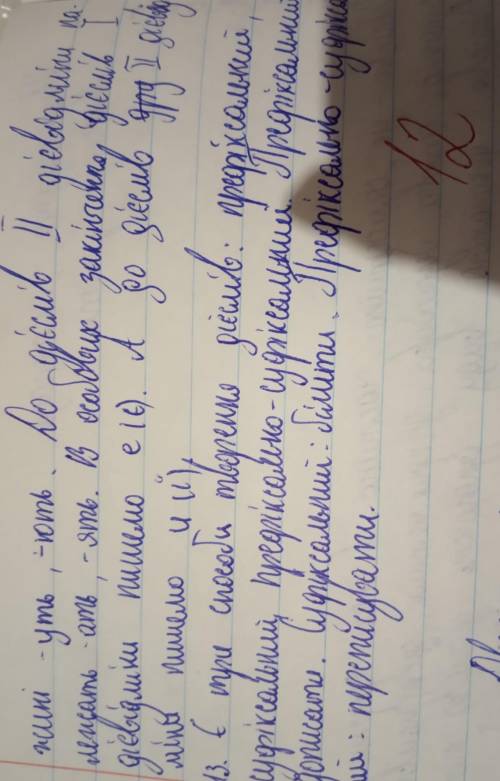 жині -уть, -ють. До дієслів II дієвідміни на-
лежать -ать -ять. В особових закінченнях дієслів I
дієвідміни пишемо е (є). А до дієслів II дієвід
міни пишемо и (ї).
13. Є три способи творення дієслів: префіксальний,
суфіксальний, префіксально-суфіксальний. Префіксальний
дописати. Суфіксальний: білити. Префіксально-суфікса
ий: переписувати.
12